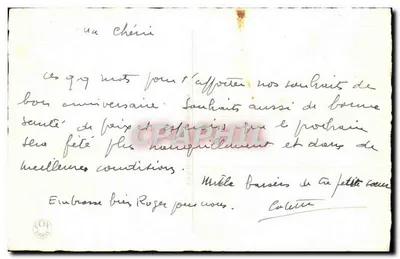 Ma Chérie
ces qq mots pour t'apporter nos souhaits de
bon anniversaire. Souhaits aussi de bonne
santé de paix et espérons que le prochain
sera fêté plus tranquillement et dans de
meilleures conditions.
Mille baisers de ta petite soeur
Embrasse bien Roger pour nous. Colette